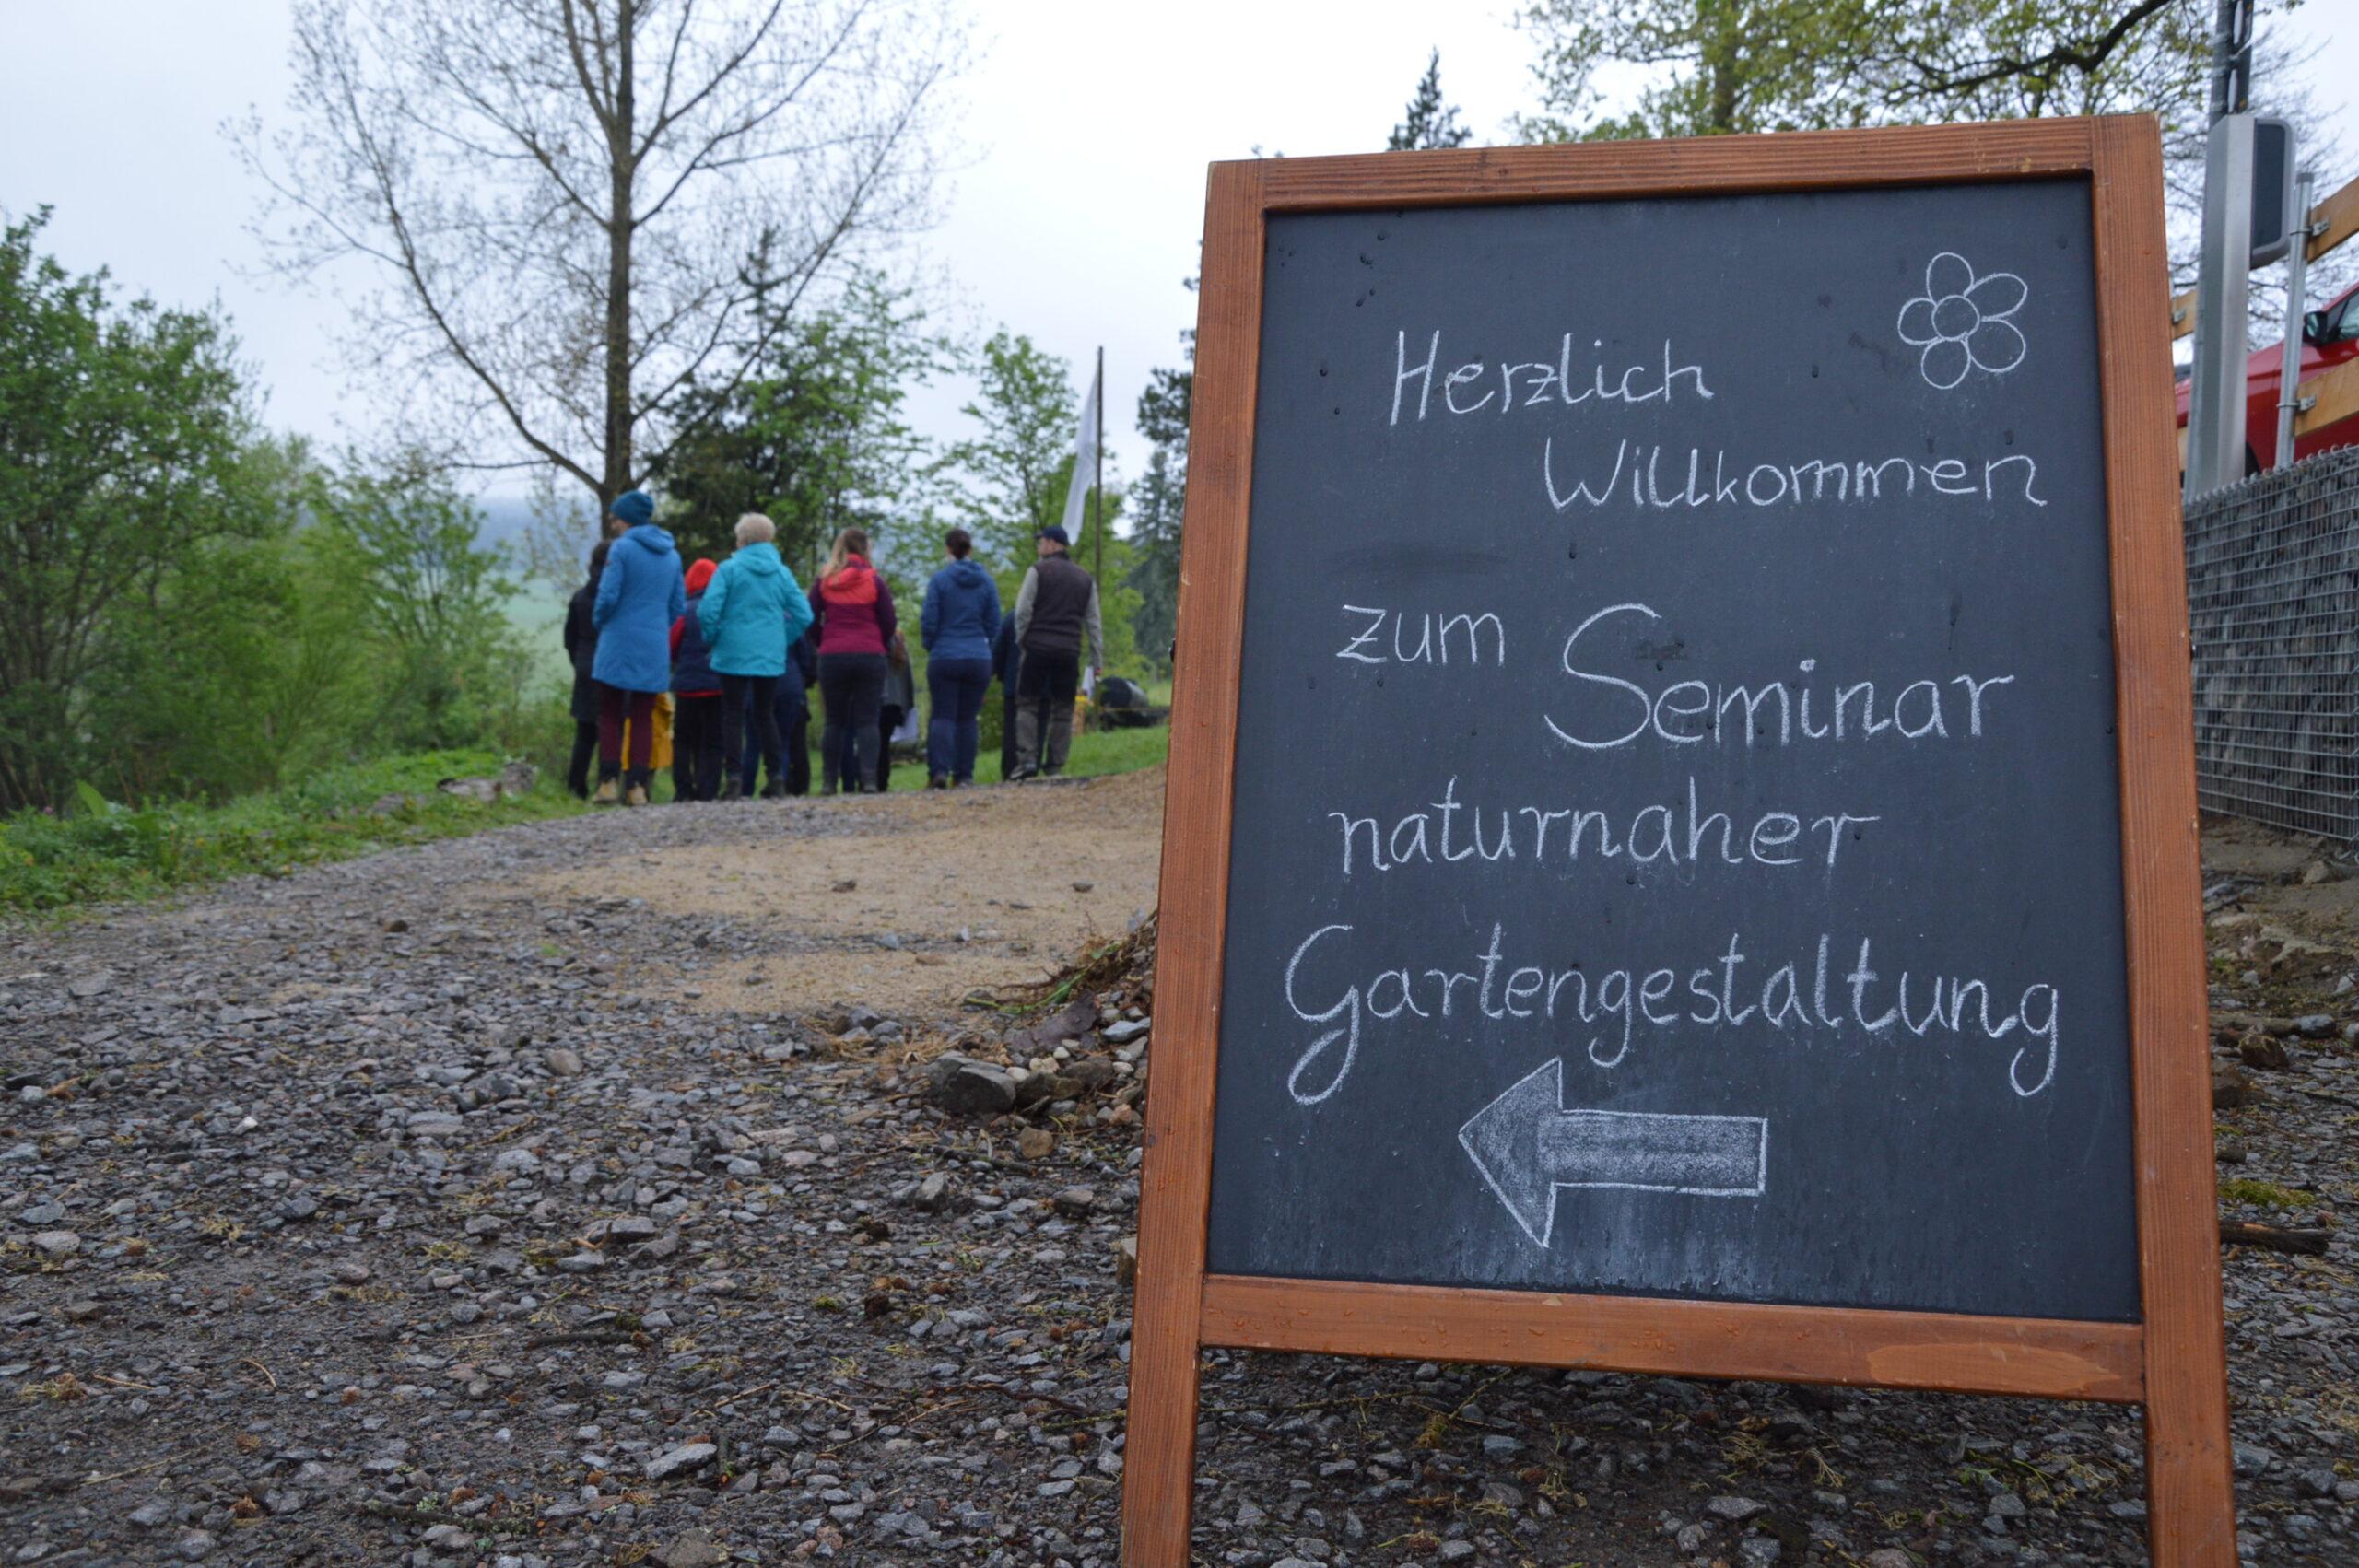 Herzlich
Willkommen
zum Seminar
naturnaher
Gartengestaltung